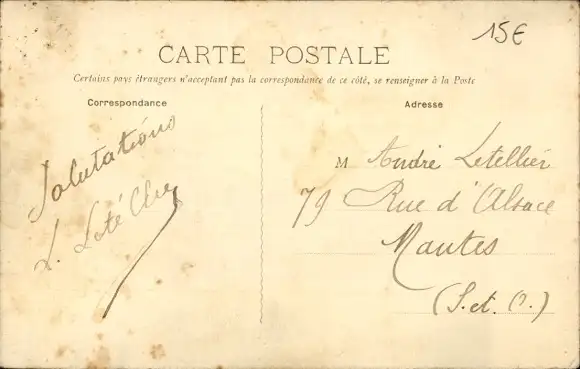 15€
CARTE POSTALE
Certains pays étrangers n'acceptant pas la correspondance de ce côté, se renseigner à la Poste
Correspondance
Adresse
Salutations
L.
M André Letellier
79 Rue d'Alsace
Mantes
(S. et. O.)